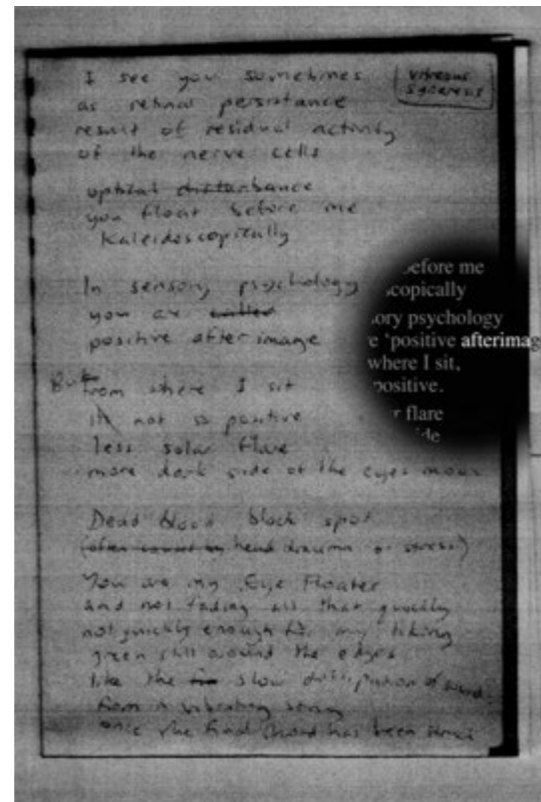 I see you sometimes
vitreous
as retinal persistance
result of residual activity
of the nerve cells
optical disturbance
you float before me
Kaleidoscopically
In sensory psychology
you are called
positive afterimage
But from where I sit
not so positive
less solar flare
more dark side of the eyes moon
Dead blood black spot
(often caused by head trauma or stress)
You are my Eye Floater
and not fading all that quickly
not quickly enough for my liking
green still around the edges
like the slow dissipation of sound
from a vibrating string
once the final chord has been
efore me
scopically
ory psychology
e ‘positive afterimag
where I sit,
positive.
r flare
ide